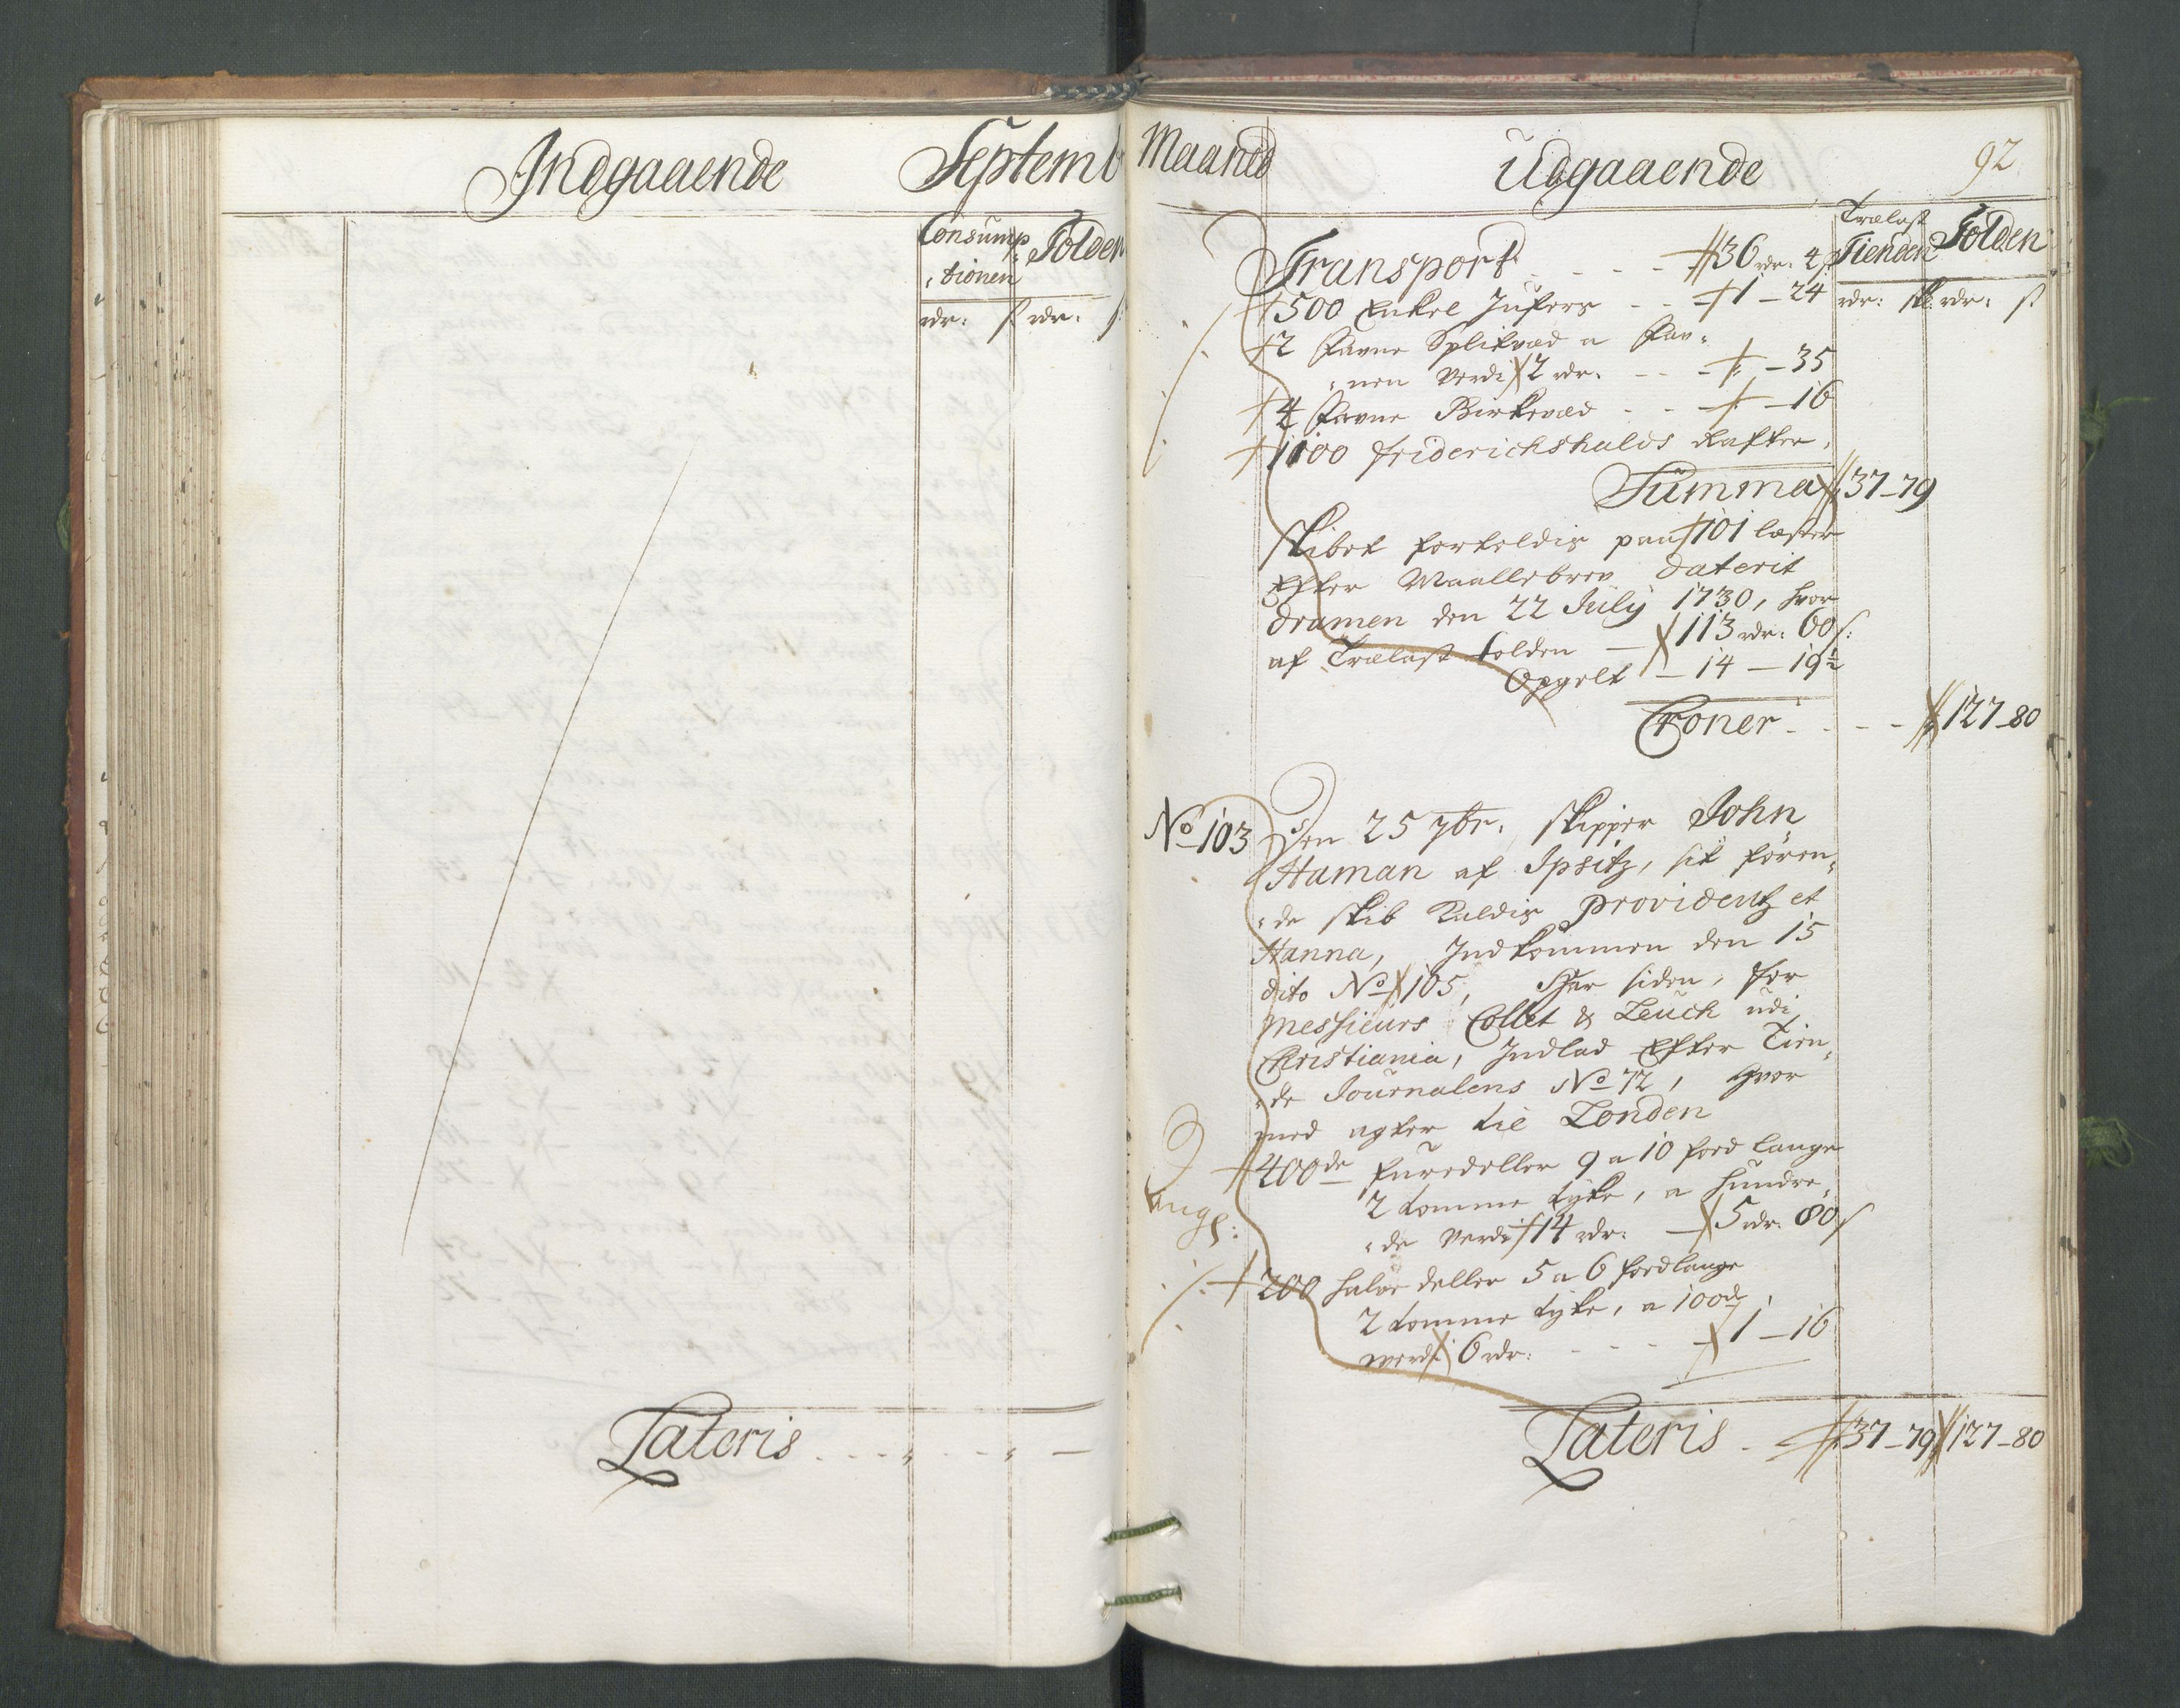 Indgaaende Septemb
Consump
tionen
Tolden
rdr: s. rdr. s:
Lateris
Maaned
Udgaaende 92
Trælast
Tienden Tolden
rdr: sk: rdr: s
Transport - - - 36 rdr. 4 s
500 Enkel Jufers - - 1 - 24
2 Favne Splitved a Fav-
nen Verdi 2 rdr. - - - 35
4 Favne Birkeved - - - 16
1100 friderichshalds Rafter.
Summa 37 - 79
Skibet fortoldis paa 101 læster
Efter Maallebrev daterit
Dramen den 22 July 1730, hvor
af Trælast tolden - 113 rdr: 60 s:
Opgelt - 14 - 19½
Croner - - - 127 - 80
No 103 Den 25 7br. Skipper John
Haman af Ipsitz, sit føren-
de Skib Kaldis Providentz et
Hanna, Indkommen den 15
dito No 105, Her siden, for
Messieurs Collet & Leuch udi
Christiania, Indlad Efter Tien-
de Journalens No 72, Hvor
med agter til Londen
400de furedeller 9 a 10 foed lange
2 tomme tyke, a Hundre-
de Verdi 14 rdr: - 5 rdr. 80 s
Engl:
200 halve deller 5 a 6 foed lange
2 tomme tyke, a 100de
Werdi 6 rdr: - - - 1 - 16
Lateris - 37 - 79 127 - 80